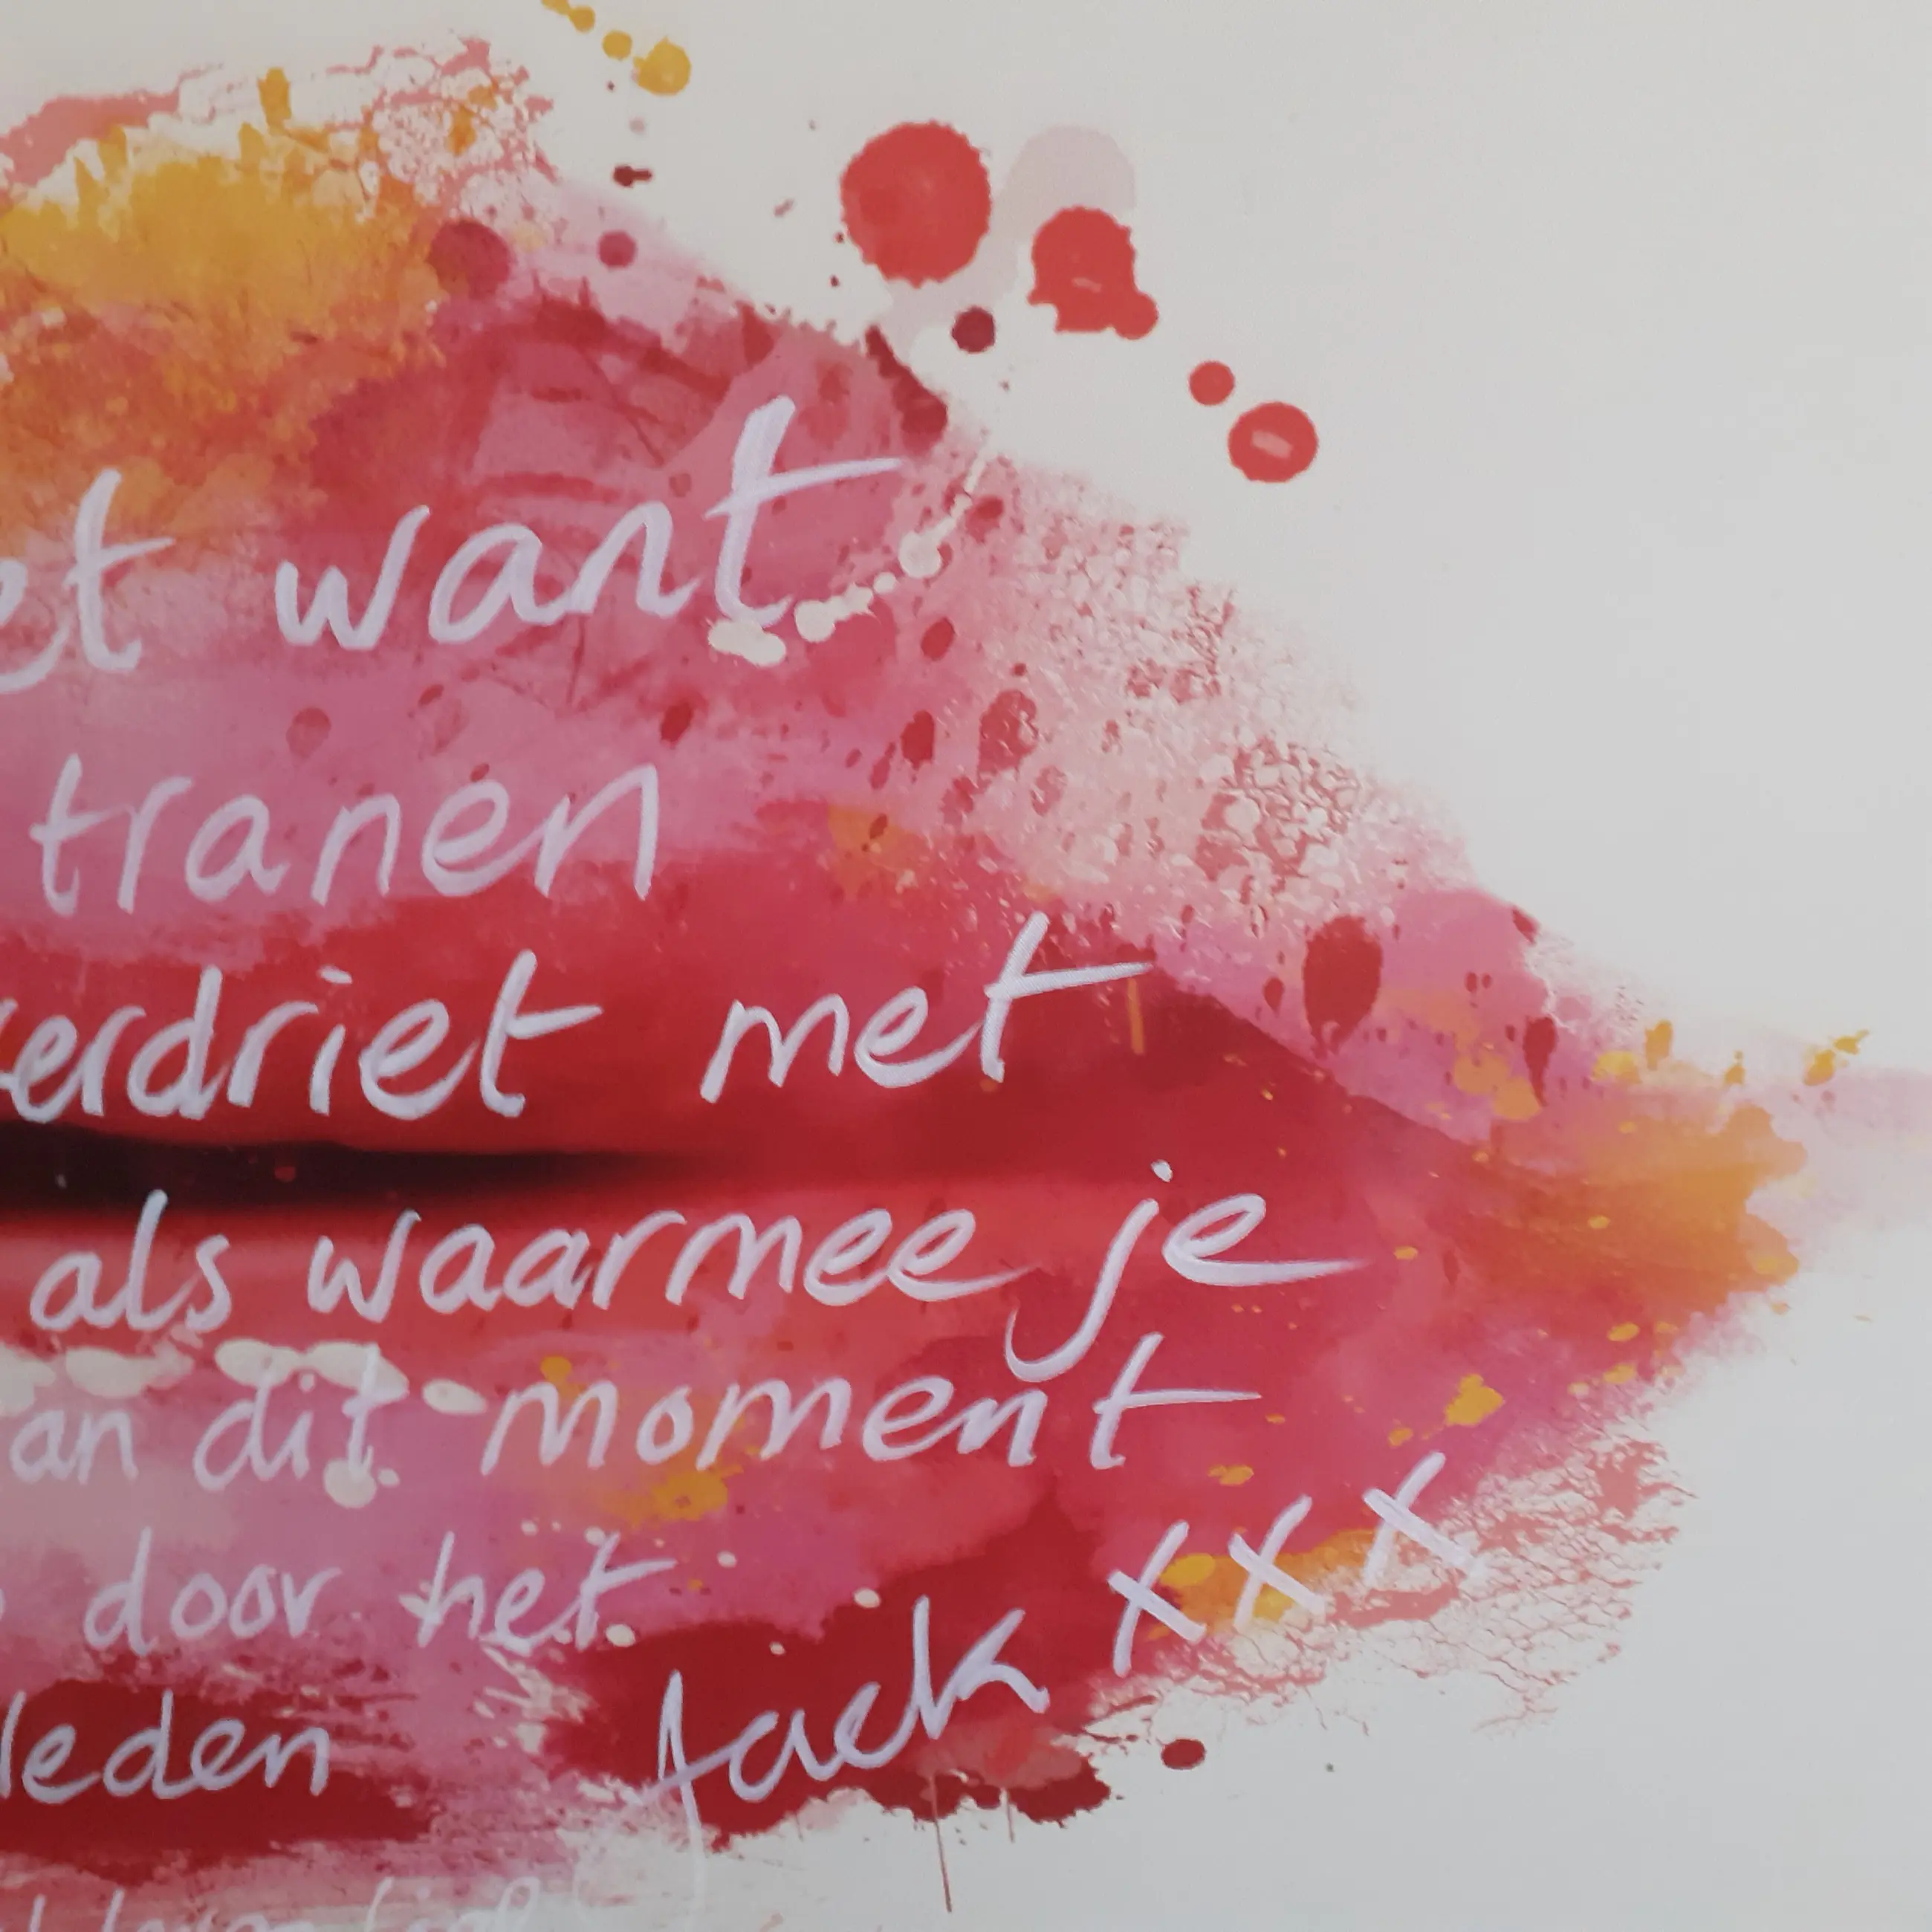 want
tranen
verdriet met
als waarmee je
dit moment
door het
leden
Jack xxx